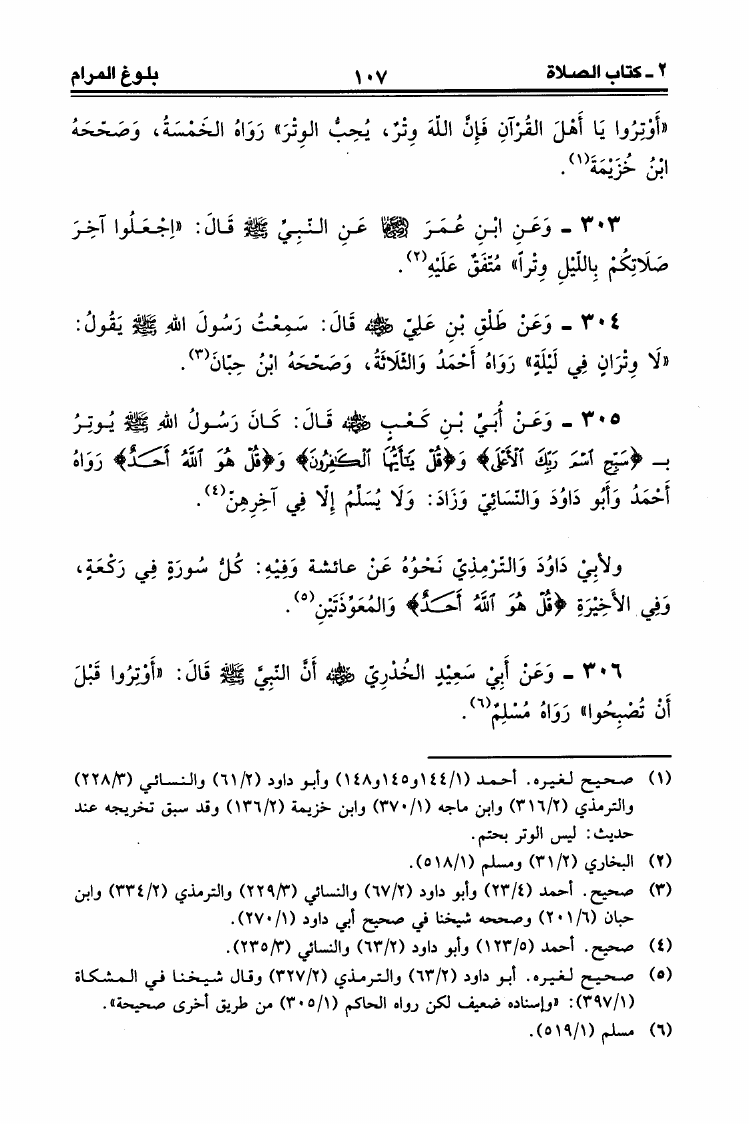 ٢ ـ كتاب الصلاة ١٠٧ بلوغ المرام
«أَوْتِرُوا يَا أَهْلَ القُرْآنِ فَإِنَّ اللَّهَ وِتْرٌ، يُحِبُّ الوِتْرَ» رَوَاهُ الخَمْسَةُ، وَصَحَّحَهُ
ابْنُ خُزَيْمَةَ(١).
٣٠٣ ـ وَعَنِ ابْنِ عُمَرَ رضي الله عنهما عَنِ النَّبِيِّ ﷺ قَالَ: «اجْعَلُوا آخِرَ
صَلَاتِكُمْ بِاللَّيْلِ وِتْراً» مُتَّفَقٌ عَلَيْهِ(٢).
٣٠٤ ـ وَعَنْ طَلْقِ بْنِ عَلِيٍّ رضي الله عنه قَالَ: سَمِعْتُ رَسُولَ اللهِ ﷺ يَقُولُ:
«لَا وِتْرَانِ فِي لَيْلَةٍ» رَوَاهُ أَحْمَدُ وَالثَّلَاثَةُ، وَصَحَّحَهُ ابْنُ حِبَّانَ(٣).
٣٠٥ ـ وَعَنْ أُبَيِّ بْنِ كَعْبٍ رضي الله عنه قَالَ: كَانَ رَسُولُ اللهِ ﷺ يُوتِرُ
بِـ ﴿سَبِّحِ ٱسْمَ رَبِّكَ ٱلْأَعْلَى﴾ وَ﴿قُلْ يَٰٓأَيُّهَا ٱلْكَٰفِرُونَ﴾ وَ﴿قُلْ هُوَ ٱللَّهُ أَحَدٌ﴾ رَوَاهُ
أَحْمَدُ وَأَبُو دَاوُدَ وَالنَّسَائِيُّ وَزَادَ: وَلَا يُسَلِّمُ إِلَّا فِي آخِرِهِنَّ(٤).
ولأبِيْ دَاوُدَ وَالتِّرْمِذِيِّ نَحْوُهُ عَنْ عائشة وَفِيْهِ: كُلُّ سُورَةٍ فِي رَكْعَةٍ،
وَفِي الأَخِيْرَةِ ﴿قُلْ هُوَ ٱللَّهُ أَحَدٌ﴾ وَالمُعَوِّذَتَيْنِ(٥).
٣٠٦ ـ وَعَنْ أَبِيْ سَعِيْدٍ الخُدْرِيِّ رضي الله عنه أَنَّ النَّبِيَّ ﷺ قَالَ: «أَوْتِرُوا قَبْلَ
أَنْ تُصْبِحُوا» رَوَاهُ مُسْلِمٌ(٦).
(١) صحيح لغيره. أحمد (١/١٤٤و١٤٥و١٤٨) وأبو داود (٢/٦١) والنسائي (٣/٢٢٨)
والترمذي (٢/٣١٦) وابن ماجه (١/٣٧٠) وابن خزيمة (٢/١٣٦) وقد سبق تخريجه عند
حديث: ليس الوتر بحتم.
(٢) البخاري (٢/٣١) ومسلم (١/٥١٨).
(٣) صحيح. أحمد (٤/٢٣) وأبو داود (٢/٦٧) والنسائي (٣/٢٢٩) والترمذي (٢/٣٣٤) وابن
حبان (٦/٢٠١) وصححه شيخنا في صحيح أبي داود (١/٢٧٠).
(٤) صحيح. أحمد (٥/١٢٣) وأبو داود (٢/٦٣) والنسائي (٣/٢٣٥).
(٥) صحيح لغيره. أبو داود (٢/٦٣) والترمذي (٢/٣٢٧) وقال شيخنا في المشكاة
(١/٣٩٧): «وإسناده ضعيف لكن رواه الحاكم (١/٣٠٥) من طريق أخرى صحيحة».
(٦) مسلم (١/٥١٩).